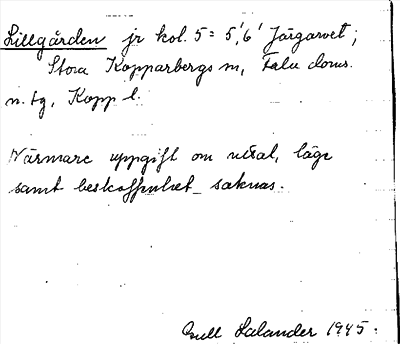 Lillgården jr kol. 5 = 5', 6' Jörgarvet;
Stora Kopparbergs sn, Falu doms.
n. tg, Kopp l.
Närmare uppgift om uttal, läge
samt beskaffenhet saknas.
Gull Salander 1945.